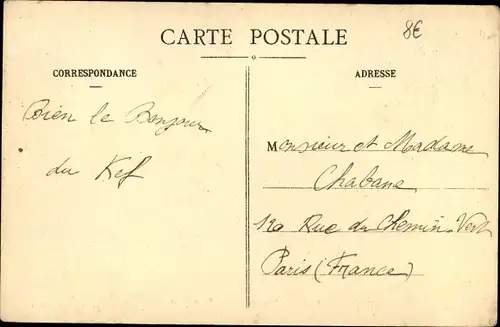 8€
CARTE POSTALE
CORRESPONDANCE
ADRESSE
Bien le Bonjour
du Kef
Monsieur et Madame
Chabane
120 Rue du Chemin-Vert
Paris (France)